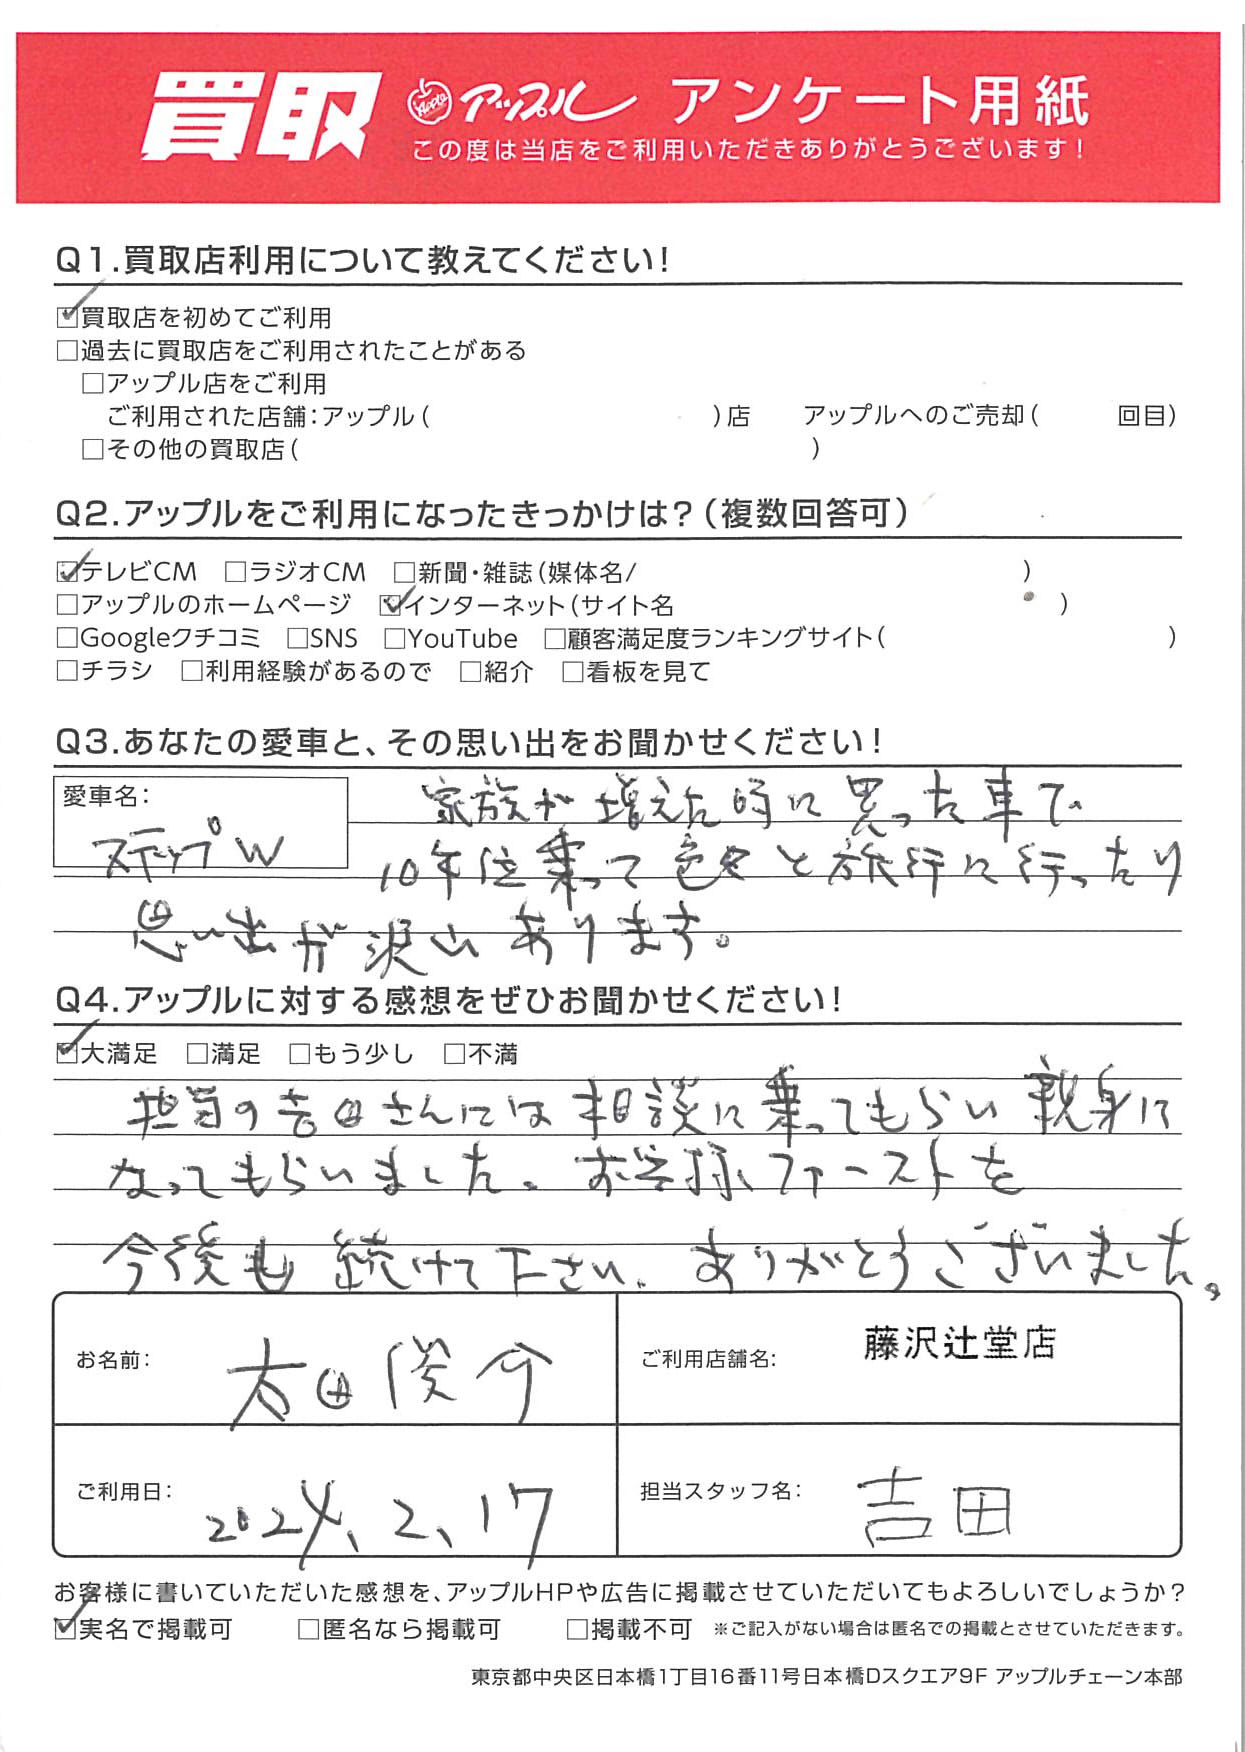 買取 Apple アップル アンケート用紙
この度は当店をご利用いただきありがとうございます!
Q1.買取店利用について教えてください!
☑買取店を初めてご利用
□過去に買取店をご利用されたことがある
□アップル店をご利用
ご利用された店舗:アップル( )店 アップルへのご売却( 回目)
□その他の買取店( )
Q2.アップルをご利用になったきっかけは?(複数回答可)
☑テレビCM □ラジオCM □新聞・雑誌(媒体名/ )
□アップルのホームページ ☑インターネット(サイト名 )
□Googleクチコミ □SNS □YouTube □顧客満足度ランキングサイト( )
□チラシ □利用経験があるので □紹介 □看板を見て
Q3.あなたの愛車と、その思い出をお聞かせください!
愛車名:
ステップW
家族が増えた時に買った車で
10年位乗って色々と旅行に行ったり
思い出が沢山あります。
Q4.アップルに対する感想をぜひお聞かせください!
☑大満足 □満足 □もう少し □不満
担当の吉田さんには相談に乗ってもらい親身に
なってもらいました。お客様ファーストを
今後も続けて下さい。ありがとうございました。
お名前: 太田俊介
ご利用店舗名: 藤沢辻堂店
ご利用日: 2024.2.17
担当スタッフ名: 吉田
お客様に書いていただいた感想を、アップルHPや広告に掲載させていただいてもよろしいでしょうか?
☑実名で掲載可 □匿名なら掲載可 □掲載不可 ※ご記入がない場合は匿名での掲載とさせていただきます。
東京都中央区日本橋1丁目16番11号日本橋Dスクエア9F アップルチェーン本部